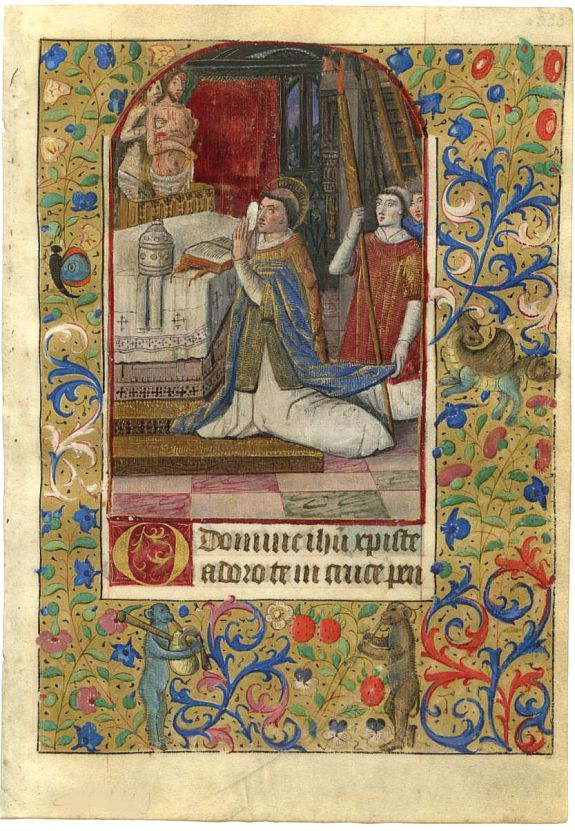 O Domine ihū xpiste
adoro te in cruce pen